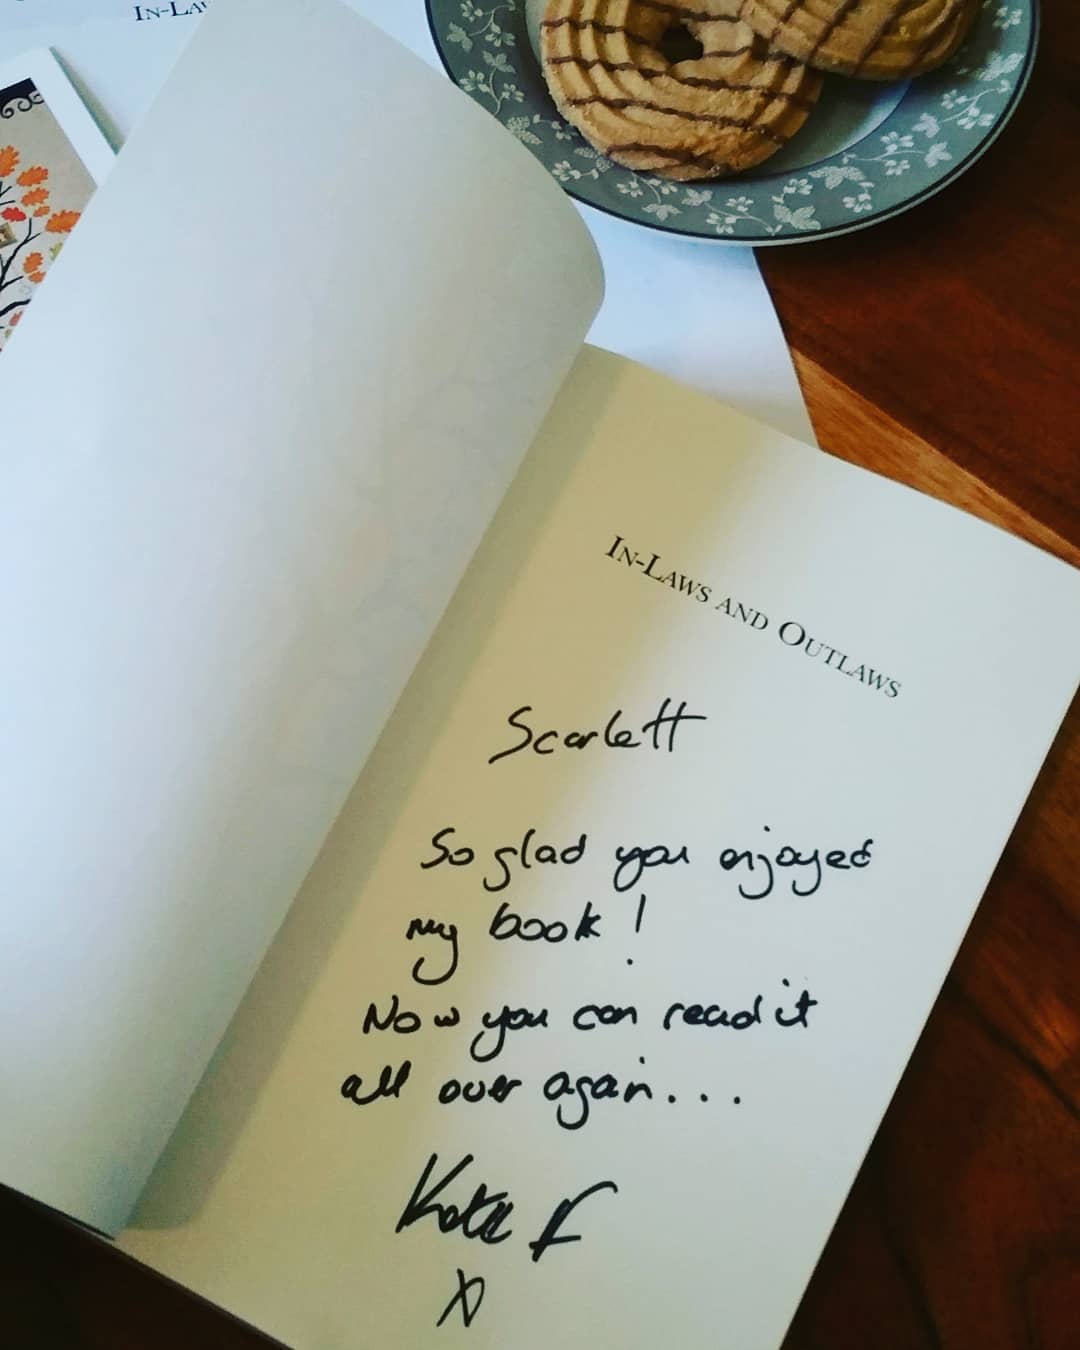 IN-LA
IN-LAWS AND OUTLAWS
Scarlett
So glad you enjoyed
my book!
Now you can read it
all over again...
Kate F
X